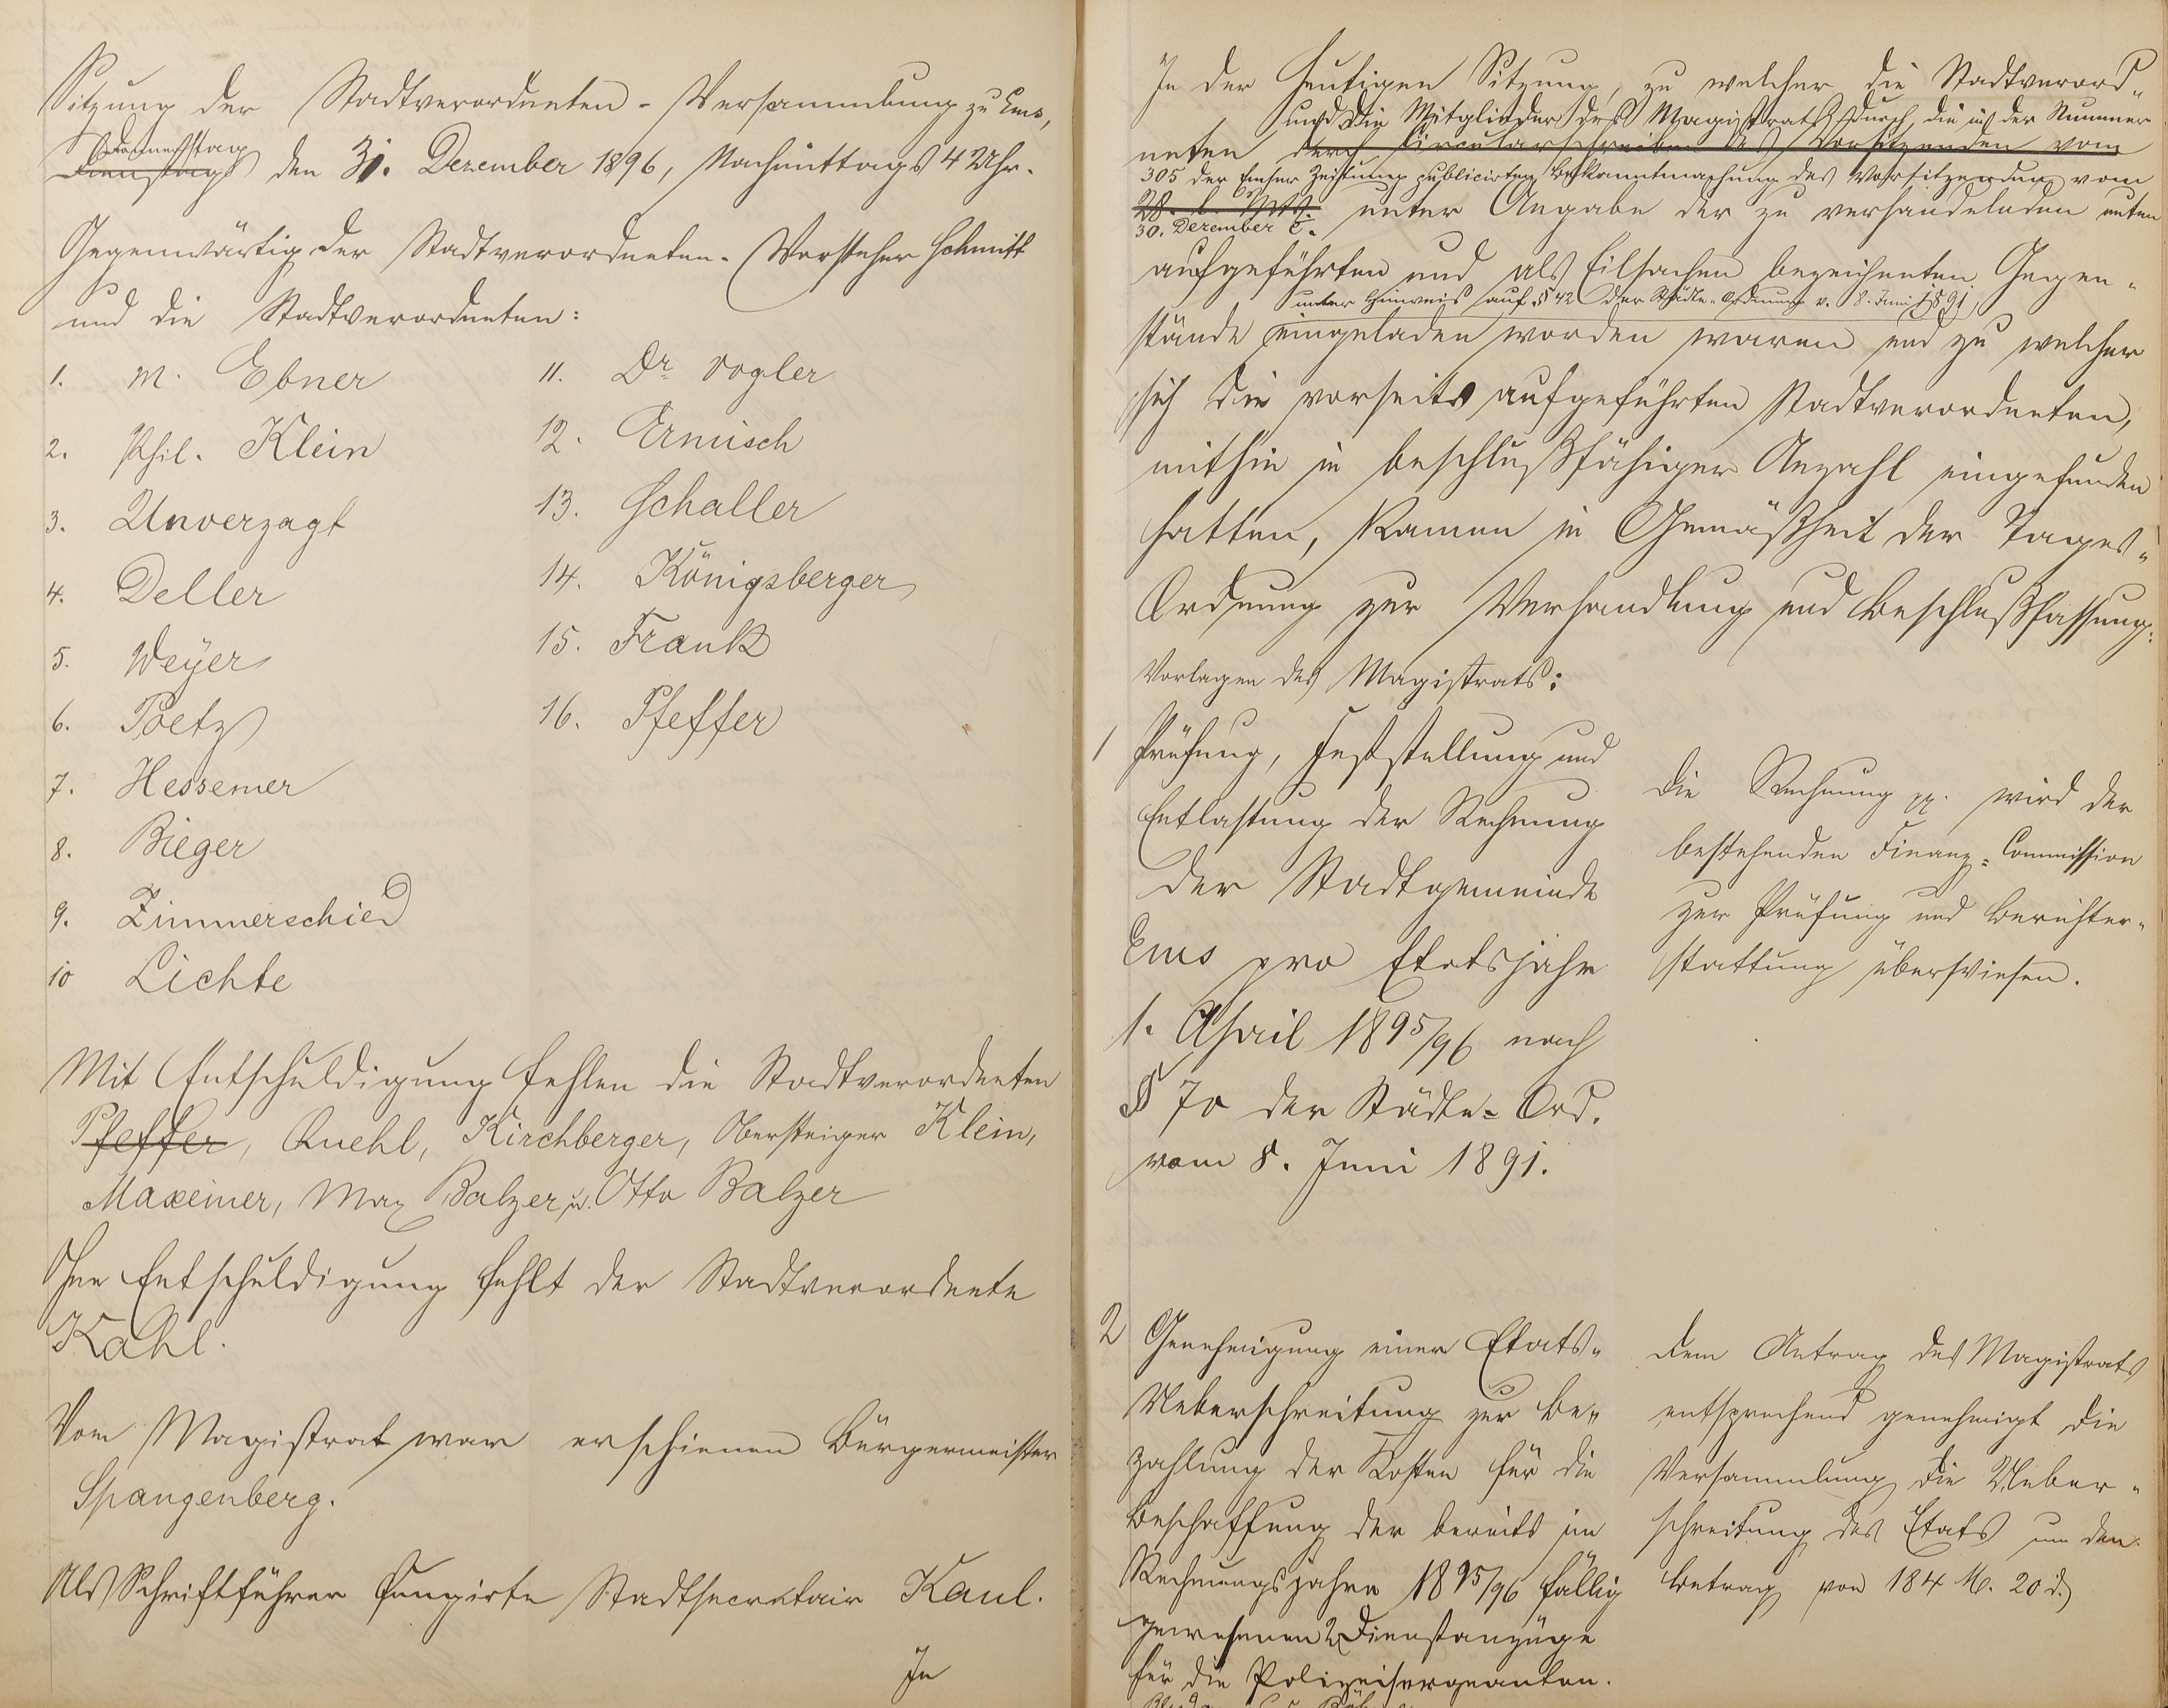 Sitzung der Stadtverordneten-Versammlung zu Ems,
Donnerstag
Dienstag den 31. Dezember 1896, Nachmittags 4 Uhr.
Gegenwärtig der Stadtverordneten-Vorsteher Schmitt
und die Stadtverordneten:
1. M. Ebner
2. Phil. Klein
3. Unverzagt
4. Deller
5. Weyer
6. Poetz
7. Hessemer
8. Bieger
9. Zimmerschied
10 Lichte
11. Dr. Vogler
12. Ermisch
13. Schaller
14. Königsberger
15. Frank
16. Pfeffer
Mit Entschuldigung fehlen die Stadtverordneten
Pfeffer, Ruehl, Kirchberger, Obersteiger Klein,
Maxeiner, Max Balzer u. Otto Balzer
Ohne Entschuldigung fehlt der Stadtverordnete
Kahl.
Vom Magistrat war erschienen Bürgermeister
Spangenberg.
Als Schriftführer fungirte Stadtsecretair Kaul.
In
In der heutigen Sitzung, zu welcher die Stadtverord-
und die Mitglieder des Magistrats durch die in der Nummer
neten durch Circularschreiben des Vorsitzenden vom
305 der Emser Zeitung publicirten Bekanntmachung des Vorsitzenden vom
28. l. Mts. unter Angabe der zu verhandelnden unten
30. Dezember c.
aufgeführten und als Eilsachen bezeichneten Gegen-
unter Hinweis auf § 42 der Städte-Ordnung v. 8. Juni 1891,
stände eingeladen worden waren und zu welcher
sich die vorseits aufgeführten Stadtverordneten,
mithin in beschlußfähiger Anzahl eingefunden
hatten, kamen in Gemäßheit der Tages-
Ordnung zur Verhandlung und Beschlußfassung:
Vorlagen des Magistrats:
1 Prüfung, Feststellung und
Entlastung der Rechnung
der Stadtgemeinde
Ems pro Etatsjahr
1. April 1895/96 nach
§ 70 der Städte-Ord.
vom 8. Juni 1891.
Die Rechnung pp. wird der
bestehenden Finanz-Commission
zur Prüfung und Berichter-
stattung überwiesen.
2 Genehmigung einer Etats-
Ueberschreitung zur Be-
zahlung der Kosten für die
Beschaffung der bereits im
Rechnungsjahre 1895/96 fällig
gewesenen 2 Dienstanzüge
für die Polizeisergeanten.
Dem Antrag des Magistrats
entsprechend genehmigt die
Versammlung die Ueber-
schreitung des Etats um den
Betrag von 184 M. 20 d.